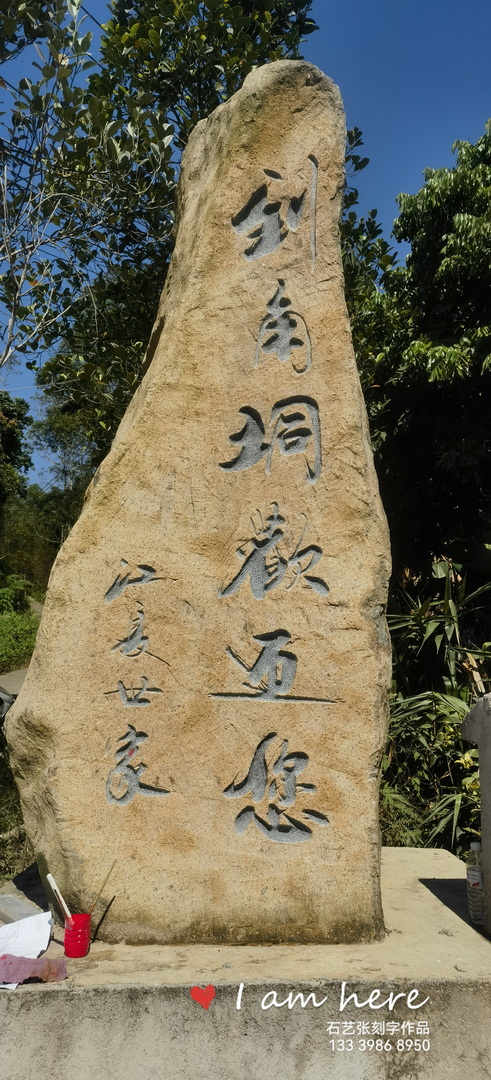 到角垌歡迎您
江夏世家
I am here
石艺张刻字作品
133 3986 8950